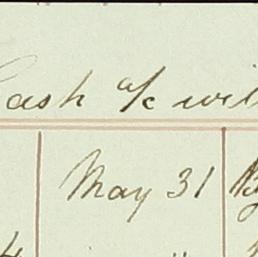 Cash a/c wit
May 31 By